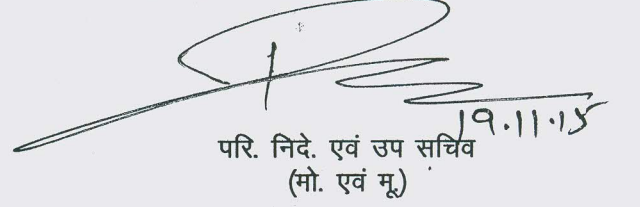 19.11.15
परि. निदे. एवं उप सचिव
(मो. एवं मू.)